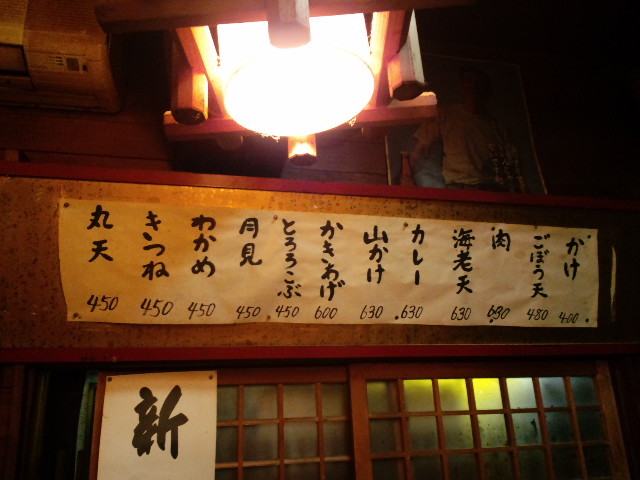 かけ 400
ごぼう天 480
肉 630
海老天 630
カレー 630
山かけ 630
かきあげ 600
とろろこぶ 450
月見 450
わかめ 450
きつね 450
丸天 450
新